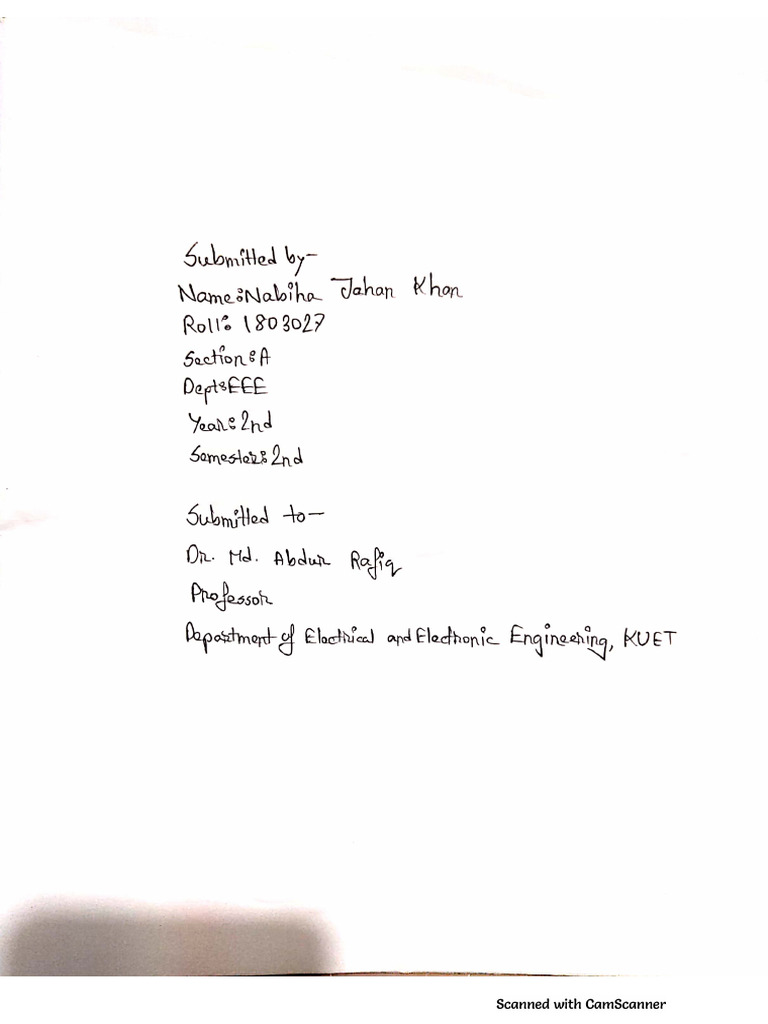 Submitted by-
Name:Nabiha Jahan Khan
Roll: 1803027
Section:A
Dept:EEE
Year:2nd
Semester:2nd
Submitted to-
Dr. Md. Abdur Rafiq
Professor
Department of Electrical and Electronic Engineering, KUET
Scanned with CamScanner